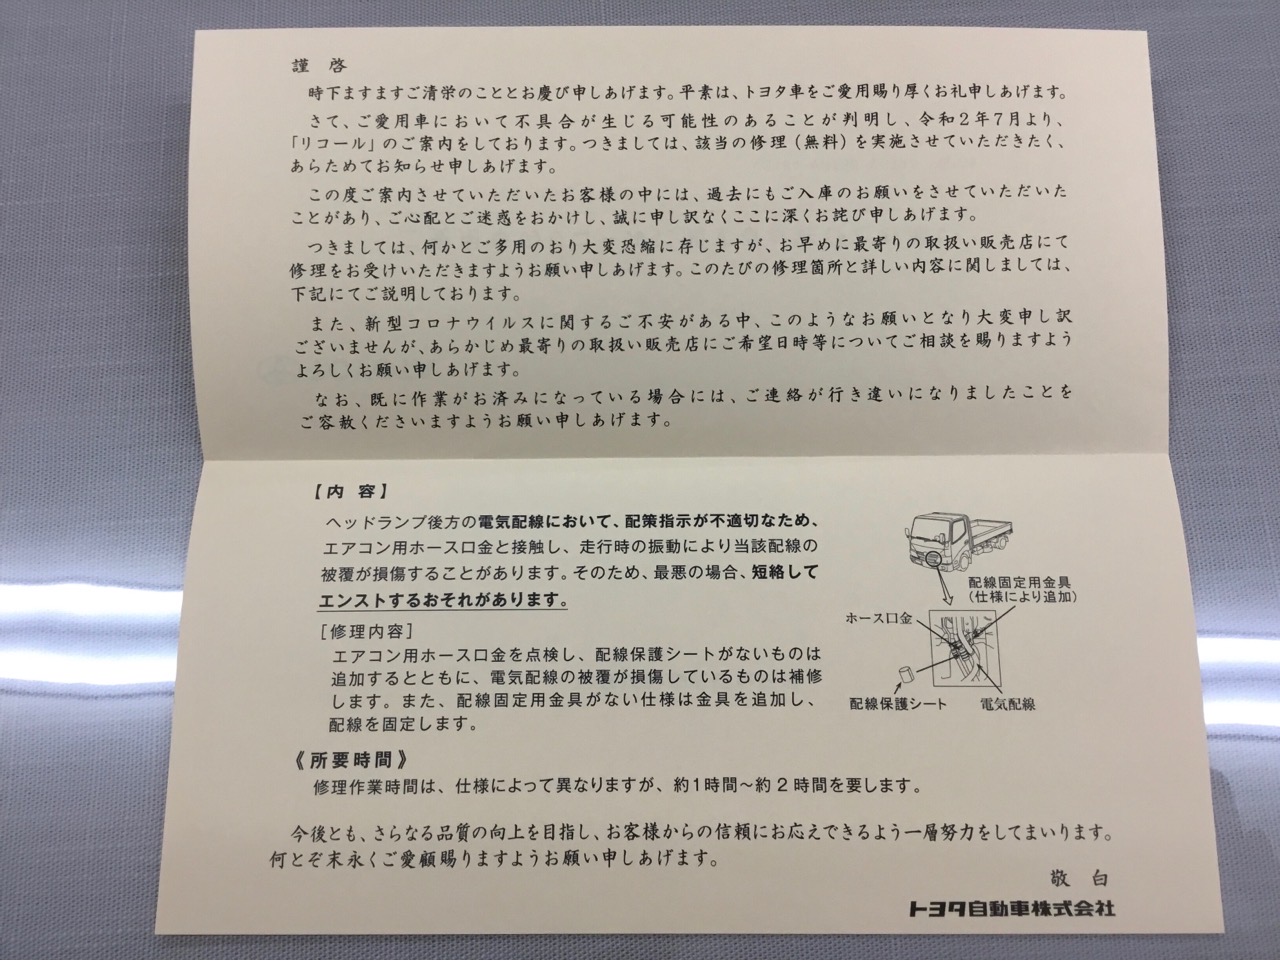 謹 啓
時下ますますご清栄のこととお慶び申しあげます。平素は、トヨタ車をご愛用賜り厚くお礼申しあげます。
さて、ご愛用車において不具合が生じる可能性のあることが判明し、令和2年7月より、
「リコール」のご案内をしております。つきましては、該当の修理（無料）を実施させていただきたく、
あらためてお知らせ申しあげます。
この度ご案内させていただいたお客様の中には、過去にもご入庫のお願いをさせていただいた
ことがあり、ご心配とご迷惑をおかけし、誠に申し訳なくここに深くお詫び申しあげます。
つきましては、何かとご多用のおり大変恐縮に存じますが、お早めに最寄りの取扱い販売店にて
修理をお受けいただきますようお願い申しあげます。このたびの修理箇所と詳しい内容に関しましては、
下記にてご説明しております。
また、新型コロナウイルスに関するご不安がある中、このようなお願いとなり大変申し訳
ございませんが、あらかじめ最寄りの取扱い販売店にご希望日時等についてご相談を賜りますよう
よろしくお願い申しあげます。
なお、既に作業がお済みになっている場合には、ご連絡が行き違いになりましたことを
ご容赦くださいますようお願い申しあげます。
【内 容】
ヘッドランプ後方の電気配線において、配策指示が不適切なため、
エアコン用ホース口金と接触し、走行時の振動により当該配線の
被覆が損傷することがあります。そのため、最悪の場合、短絡して
エンストするおそれがあります。
［修理内容］
エアコン用ホース口金を点検し、配線保護シートがないものは
追加するとともに、電気配線の被覆が損傷しているものは補修
します。また、配線固定用金具がない仕様は金具を追加し、
配線を固定します。
配線固定用金具
（仕様により追加）
ホース口金
配線保護シート
電気配線
《所要時間》
修理作業時間は、仕様によって異なりますが、約1時間～約2時間を要します。
今後とも、さらなる品質の向上を目指し、お客様からの信頼にお応えできるよう一層努力をしてまいります。
何とぞ末永くご愛顧賜りますようお願い申しあげます。
敬 白
トヨタ自動車株式会社